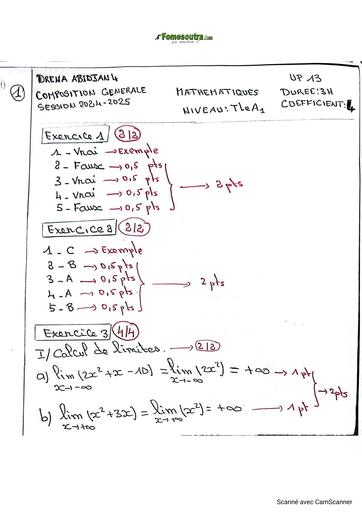 Fomesoutra.com
DRENA ABIDJAN 4
COMPOSITION GENERALE
SESSION 2024-2025
MATHEMATIQUES
NIVEAU: TLeA1
UP 13
DUREE: 3H
COEFFICIENT: 4
①
Exercice 1 2/2
1 - Vrai → Exemple
2 - Faux → 0,5 pts
3 - Vrai → 0,5 pts
4 - Vrai → 0,5 pts
5 - Faux → 0,5 pts
→ 2 pts
Exercice 2 2/2
1 - C → Exemple
2 - B → 0,5 pts
3 - A → 0,5 pts
4 - A → 0,5 pts
5 - B → 0,5 pts
→ 2 pts
Exercice 3 4/4
I/ Calcul de limites. → 2/2
a) lim (2x² + x - 10) = lim (2x²) = +∞ → 1 pt
x→-∞ x→-∞
→ 2pts
b) lim (x² + 3x) = lim (x²) = +∞ → 1 pt
x→+∞ x→+∞
Scanné avec CamScanner